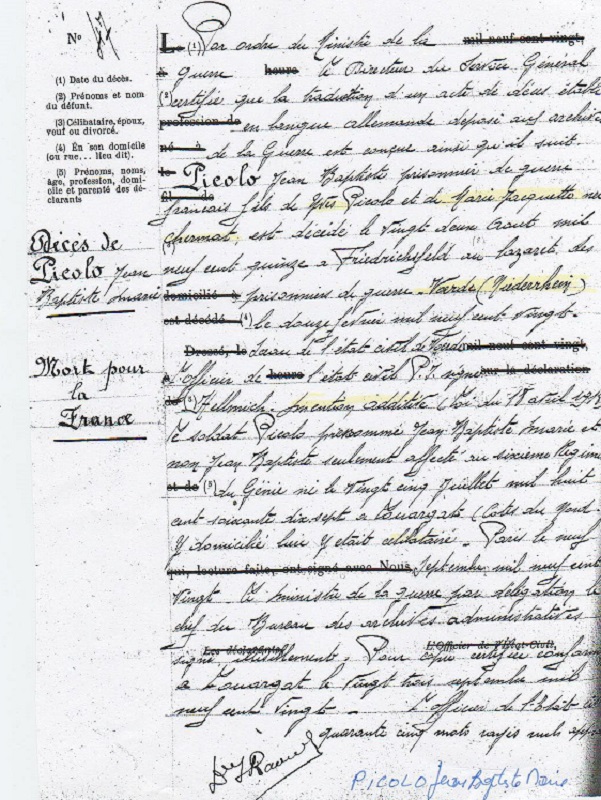 No 47
(1) Date du décès.
(2) Prénoms et nom
du défunt.
(3) Célibataire, époux,
veuf ou divorcé.
(4) En son domicile
(ou rue... lieu dit).
(5) Prénoms, noms,
âge, profession, domi-
cile et parenté des dé-
clarants
Décès de
Picolo Jean
Baptiste Marie
Mort pour
la
France
Le (1) Par ordre du Ministre de la mil neuf cent vingt,
à Guerre heure le Directeur du Service Général
(2) certifie que la traduction d'un acte de décès établi
profession de en langue allemande déposé aux archives
né à de la Guerre est conçue ainsi qu'il suit.
le Picolo Jean Baptiste prisonnier de guerre
fil de français fils de Yves Picolo et de Marie Jacquette née
est décédé le vingt deux Août mil
neuf cent quinze à Friedrichsfeld au lazaret des
domicilié à prisonniers de guerre (Niederrhein)
est décédé (4) le douze février mil neuf cent vingt.
Dressé, le Sceau de l'état civil de mil neuf cent vingt,
à L'officier de heure l'état civil P.I. signé sur la déclaration
de (5) Hellmich. mention additive (Loi du 18 avril 1918)
le soldat Picolo prénommé Jean Baptiste Marie et
non Jean Baptiste seulement affecté au sixième Régime
et de (5) du Génie né le vingt cinq Juillet mil huit
cent soixante dix sept à Louargat (Côtes du Nord
y domicilié lui y était célibataire. Paris le neuf
qui, lecture faite, ont signé avec Nous, Septembre mil neuf cent
vingt Le ministre de la guerre par délégation le
chef du Bureau des archives administratives
Les déclarants L'Officier de l'Etat-Civil,
signé illisiblement. Pour copie certifiée conforme
à Louargat le vingt trois septembre mil
neuf cent vingt. L'officier de l'Etat
quarante cinq mots rayés nuls
PICOLO Jean Baptiste Marie